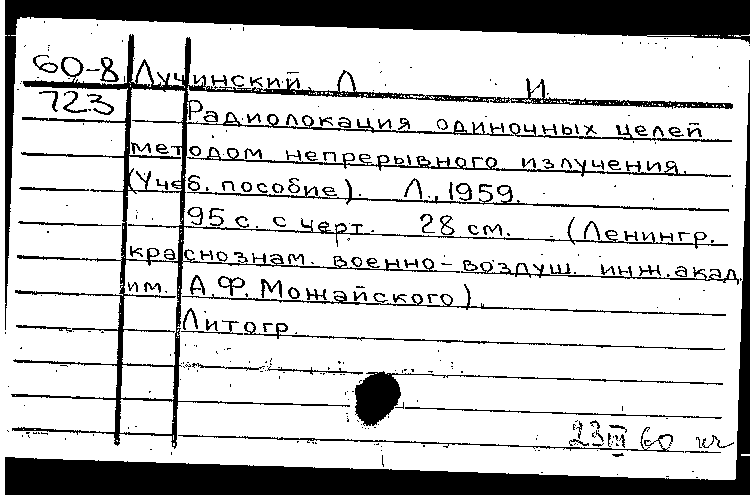 60-8 Лучинский, Л И
723 Радиолокация одиночных целей
методом непрерывного излучения.
(Учеб. пособие). Л., 1959.
95 с. с черт. 28 см. (Ленингр.
краснознам. военно-воздуш. инж. акад.
им. А.Ф. Можайского).
Литогр.
23 III 60